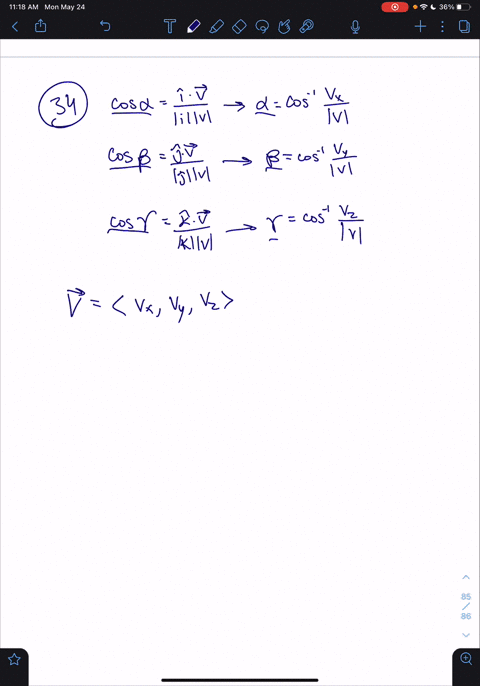 11:18 AM Mon May 24
36%
34
cosα = î · V⃗ / |i||v| → α = cos⁻¹ Vx / |v|
cosβ = ĵ · V⃗ / |j||v| → β = cos⁻¹ Vy / |v|
cosγ = k̂ · V⃗ / |k||v| → γ = cos⁻¹ Vz / |v|
V⃗ = < Vx, Vy, Vz >
85
/
86